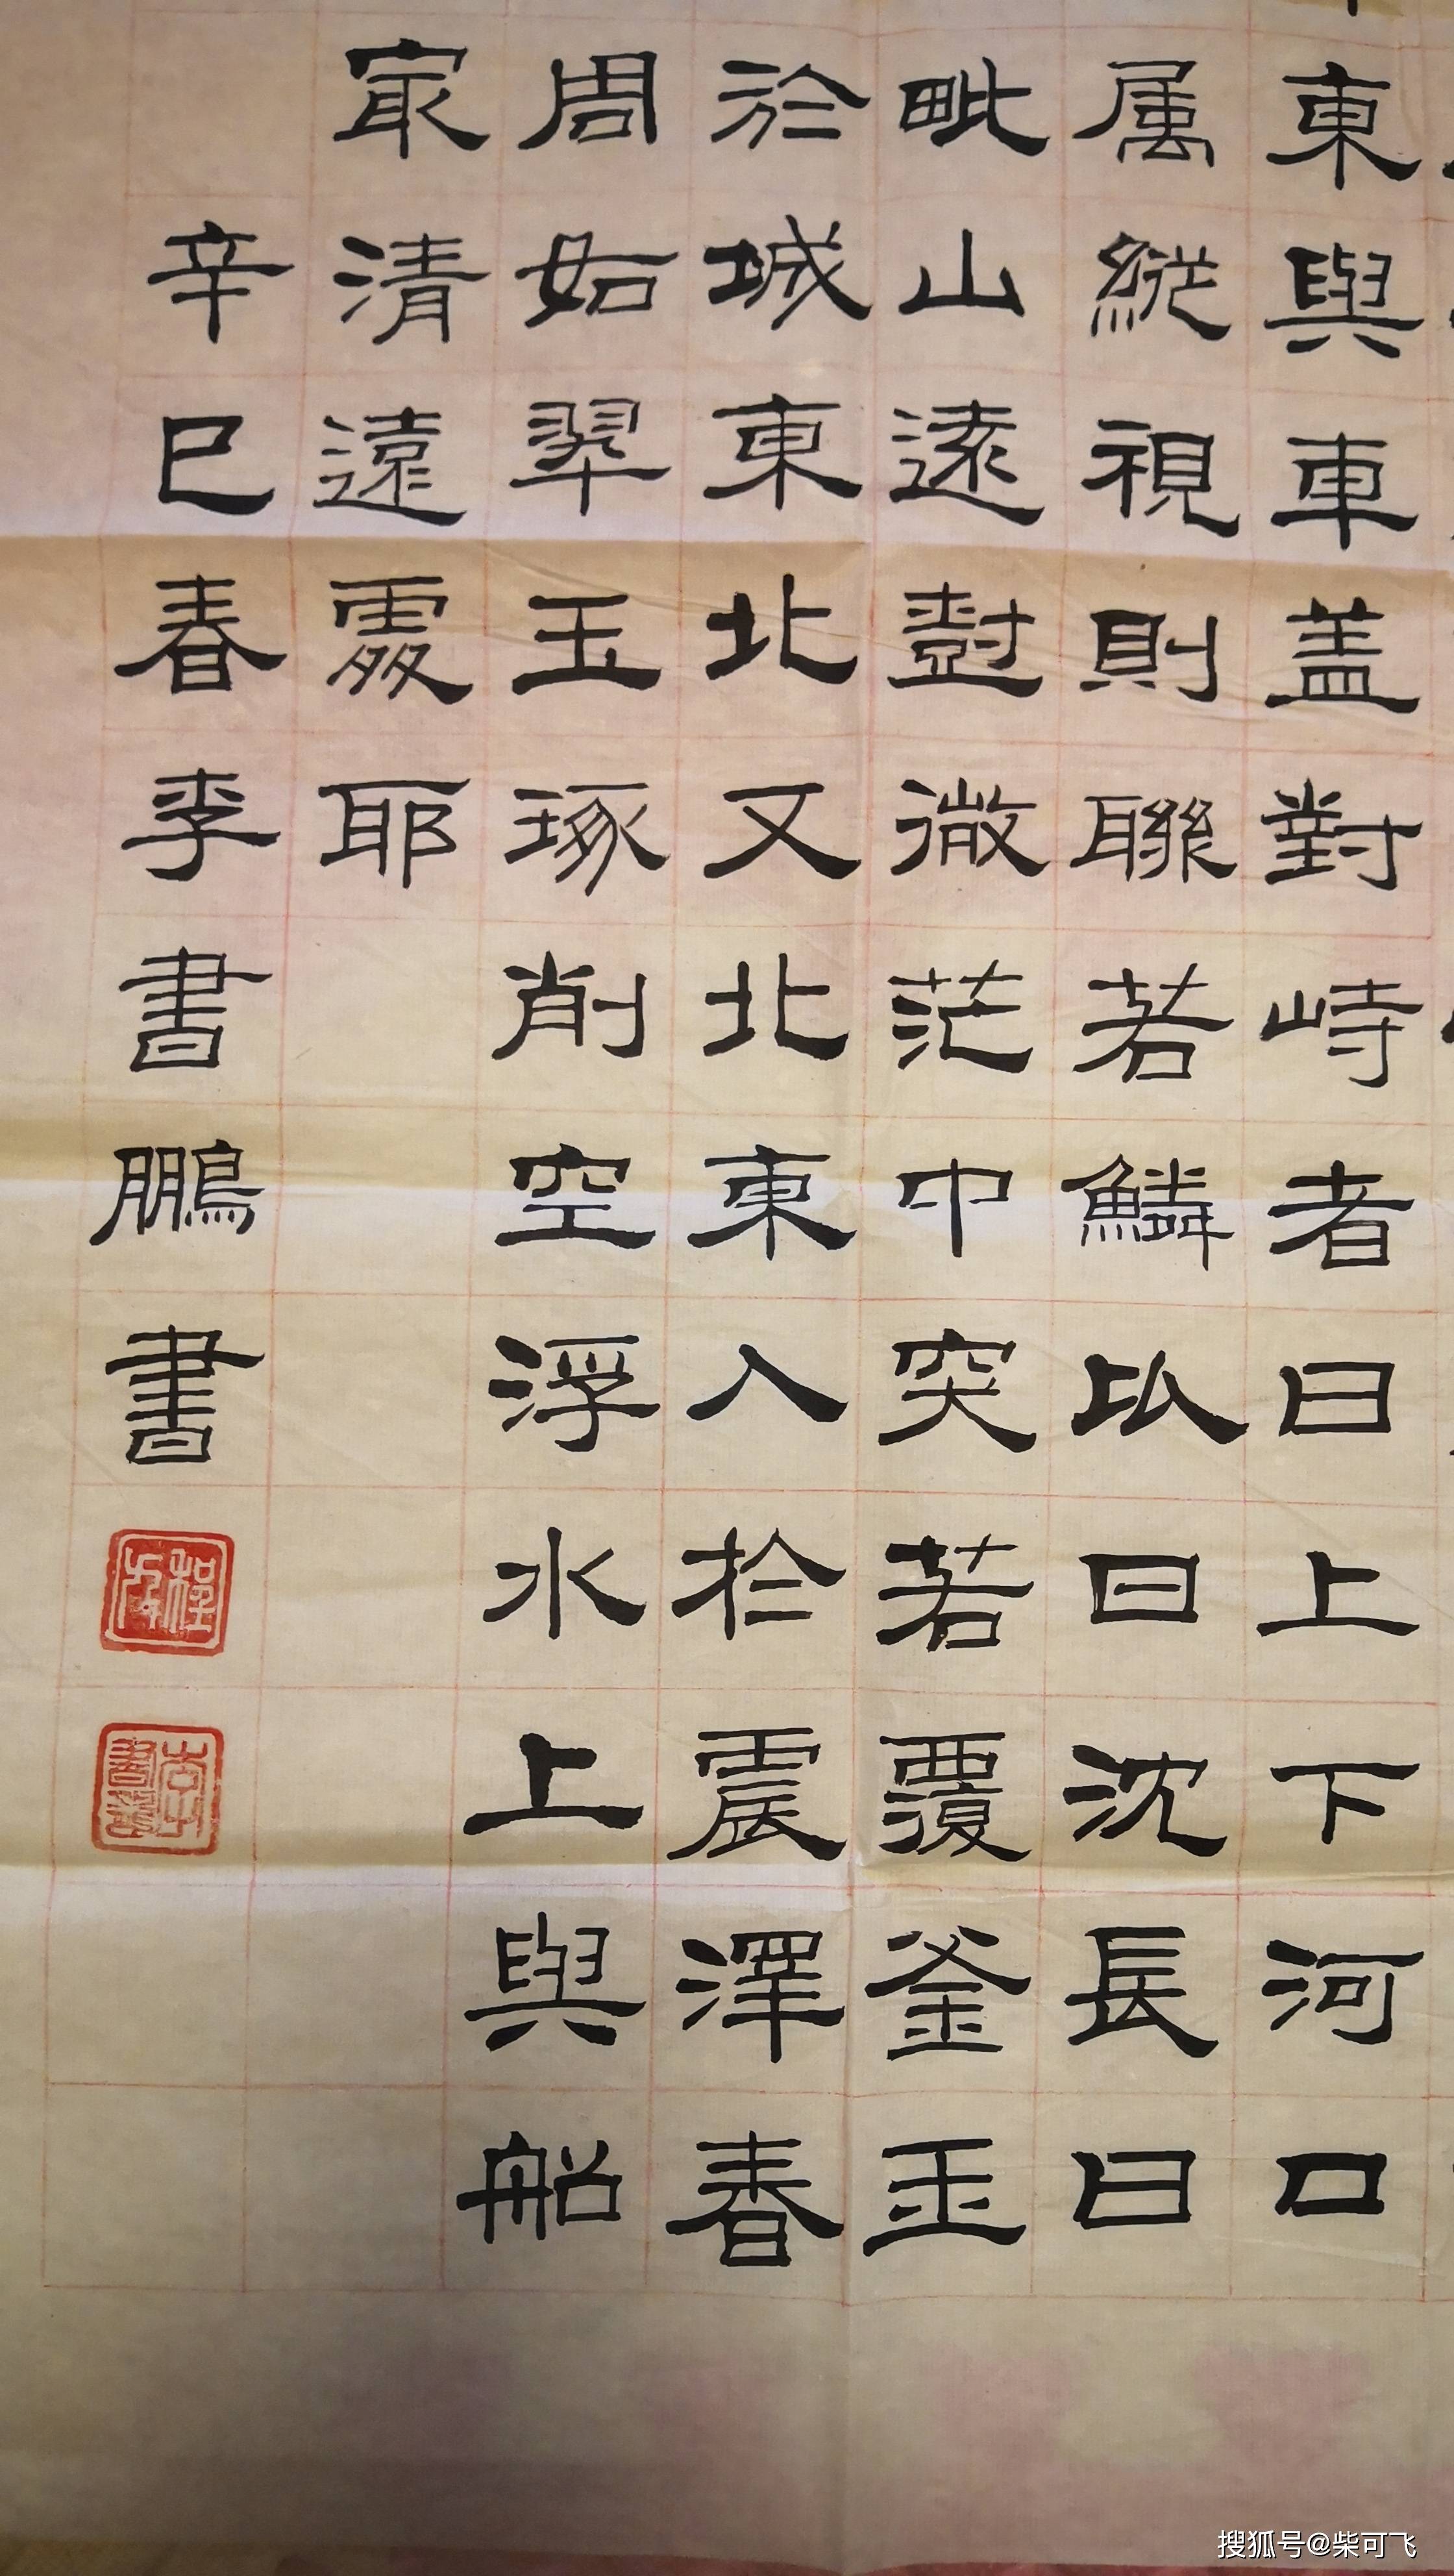 東與車蓋對峙者曰上下河口
属縱視則聯若鱗以曰沈長曰
毗山遠對微茫中突若覆釜玊
於城東北又北東入於震澤春
周如翠玉琢削空浮水上與船
冣清遠處耶
辛巳春李書鵬書
搜狐号@柴可飞